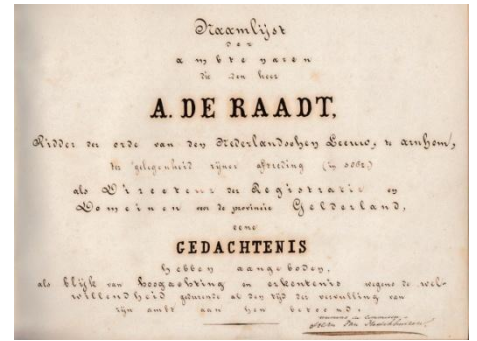 Naamlijst
der
ambtenaren
die den heer
A. DE RAADT,
Ridder der orde van den Nederlandschen Leeuw, te Arnhem,
ter gelegenheid zijner aftreding
als Directeur der Registratie en
Domeinen voor de provincie Gelderland,
eene
GEDACHTENIS
hebben aangeboden,
als blijk van hoogachting en erkentenis wegens de wel-
willendheid gedurende al den tijd der vervulling van
zijn ambt aan hen betoond.